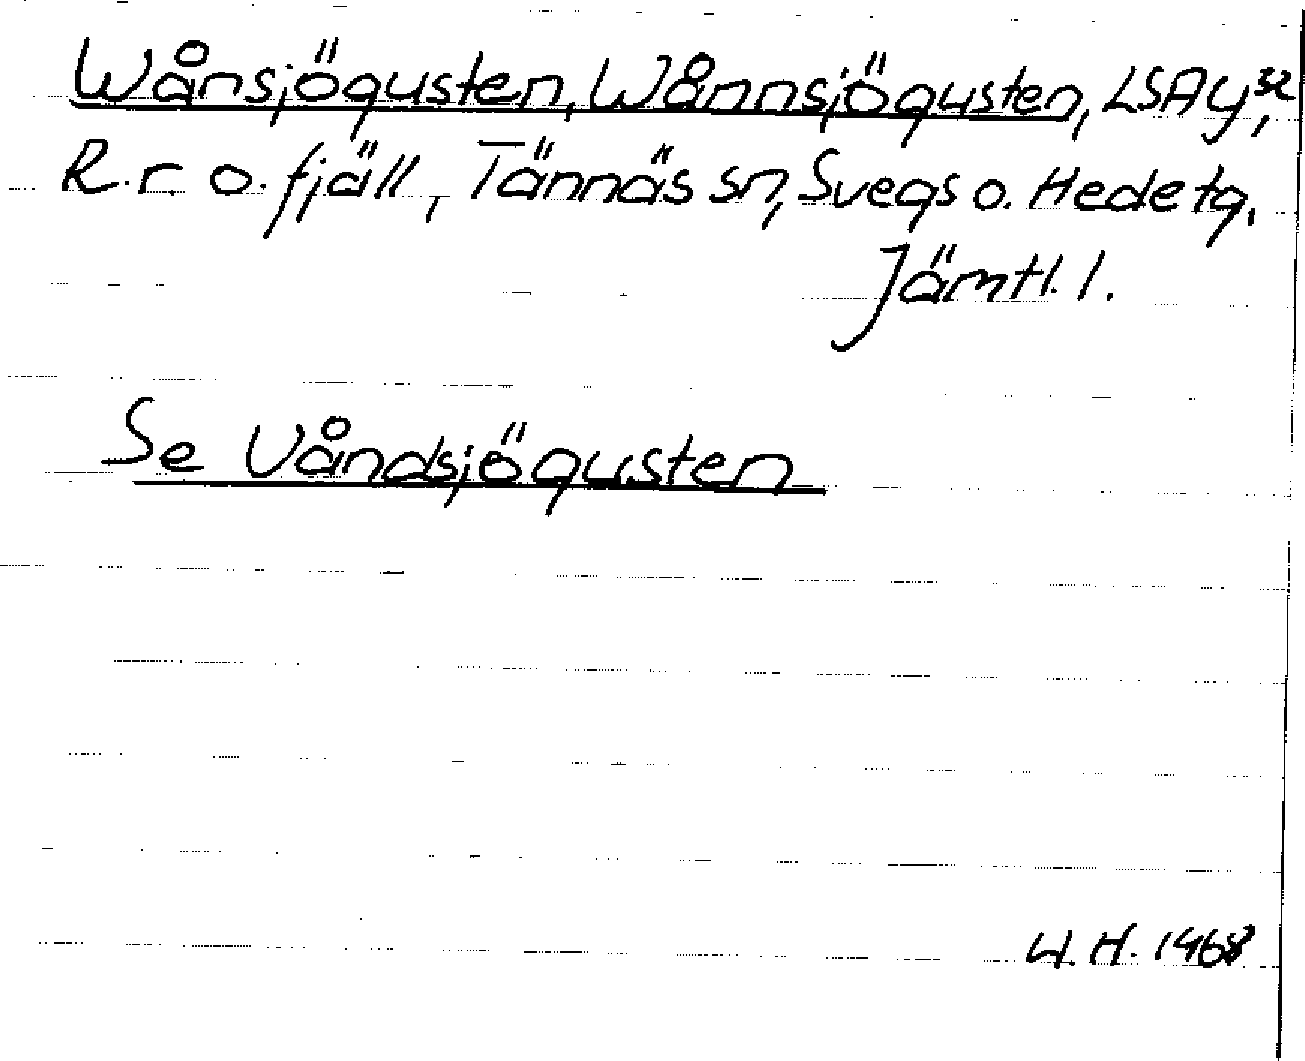 Wånsjögusten, Wånnsjögusten, LSA y 32,
R.r. o. fjäll, Tännäs sn, Svegs o. Hede tg,
Jämtl. l.
Se Våndsjögusten
W. H. 1968